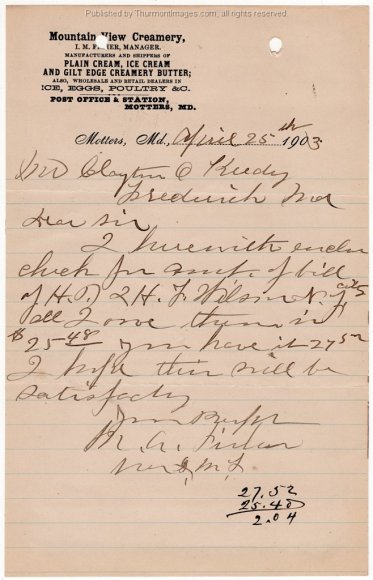 Published by Thurmontimages.com, all rights reserved
Mountain View Creamery,
I. M. FISHER, MANAGER.
MANUFACTURERS AND SHIPPERS OF
PLAIN CREAM, ICE CREAM
AND GILT EDGE CREAMERY BUTTER;
ALSO, WHOLESALE AND RETAIL DEALERS IN
ICE, EGGS, POULTRY &C.
POST OFFICE & STATION,
MOTTERS, MD.
Motters, Md., April 25 th 1903
Mr Clayton O Keedy
Frederick Md
Dear sir
I herewith enclos
check for amt of bill
of H. F. Wilson N. Y
all I owe them is
$25 48 you have it 27 52
I hope this will be
satisfacty
27.52
25.48
2.04